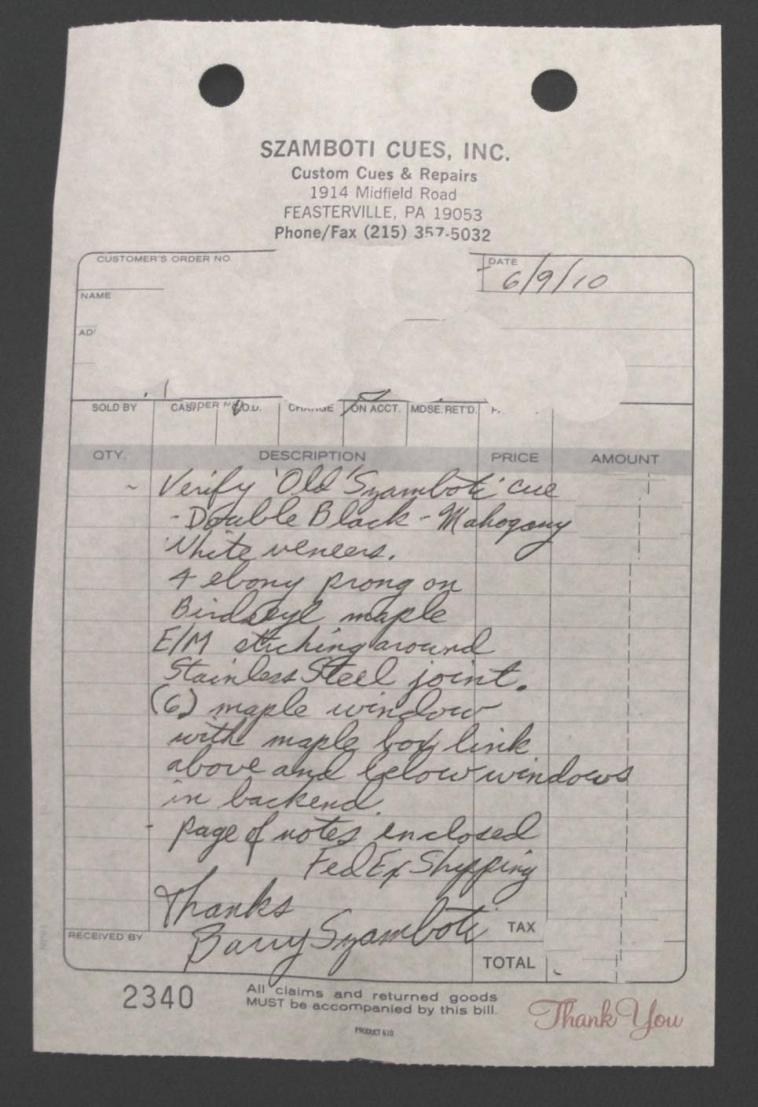 SZAMBOTI CUES, INC.
Custom Cues & Repairs
1914 Midfield Road
FEASTERVILLE, PA 19053
Phone/Fax (215) 357-5032
CUSTOMER'S ORDER NO.
DATE
6/9/10
NAME
SOLD BY
ON ACCT.
MDSE. RET'D.
QTY.
DESCRIPTION
PRICE
AMOUNT
- Verify 'Old 'Szamboti' cue
- Double Black - Mahogony
White veneers.
4 ebony prong on
Birdseye maple
E/M stiching around
Stainless Steel joint.
(6) maple window
with maple box link
above and below windows
in backend
- page of notes enclosed
FedEx Shipping
Thanks
Barry Szamboti
TAX
RECEIVED BY
TOTAL
2340
All claims and returned goods
MUST be accompanied by this bill.
Thank You
PRODUCT 610